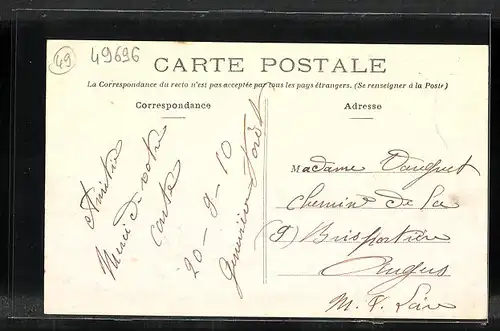 49
49696
CARTE POSTALE
La Correspondance du recto n'est pas acceptée par tous les pays étrangers. (Se renseigner à la Poste)
Correspondance
Adresse
Amitié
Merci de votre
carte
20-9-10
Geneviève
Madame
Chemin de la
Angers
M. & Loire